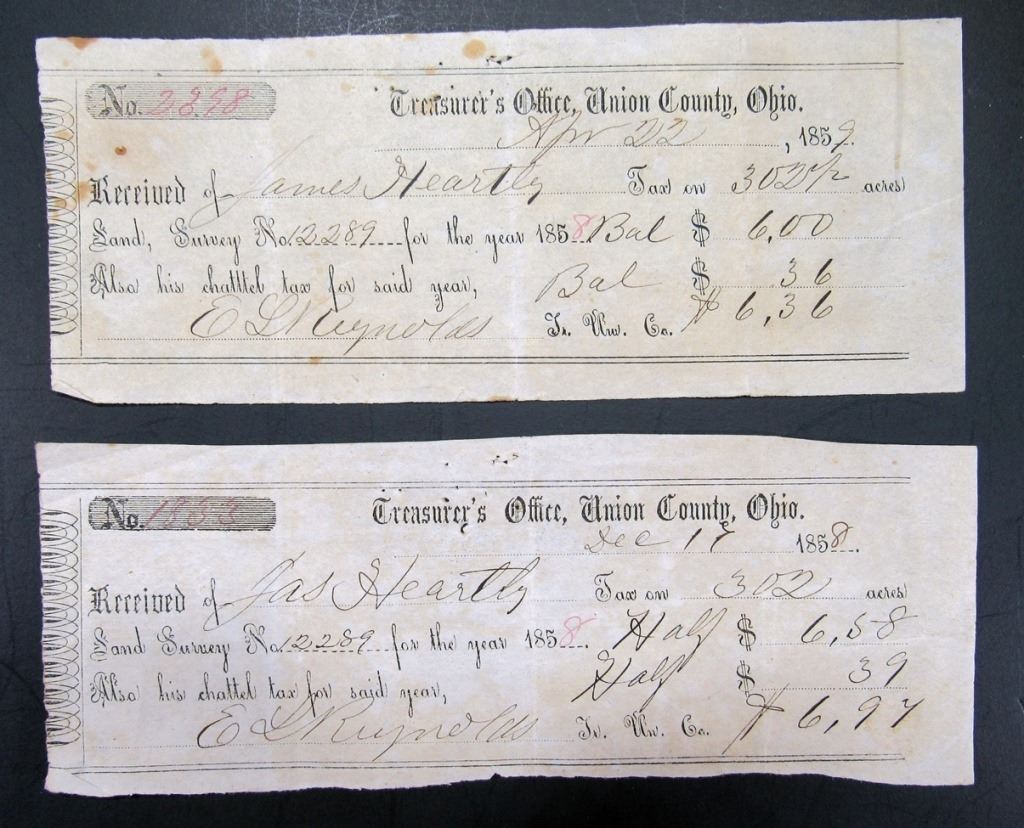 No. 2898 Treasurer's Office, Union County, Ohio.
Apr 22, 1859.
Received of James Heartly Tax on 302½ acres
Land, Survey No. 12289 for the year 1858 Bal $ 6,00
Also his chatttel tax for said year, Bal $ 36
E L Reynolds Tr. Un. Co. $ 6,36
No. 1853 Treasurer's Office, Union County, Ohio.
Dec 17 1858.
Received of Jas Heartly Tax on 302 acres
Land Survey No. 12289 for the year 1858. Half $ 6,58
Also his chattel tax for said year, Half $ 39
E L Reynolds Tr. Un. Co. $ 6,97